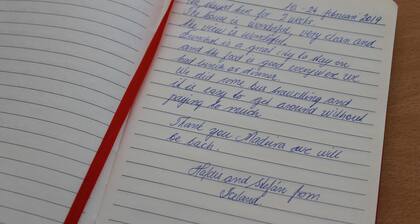 10 - 24 februar 2019
We stayed here for 2 weeks.
The house is wonderful, very clean and
the view is wonderful.
Funchal is a great city to stay in
and the food is good everywere we
had lunch or dinner.
We did some bus travelling and
it is easy to get around without
paying to much.
Thank you Madeira we will
be back.
and Stefán from
Iceland